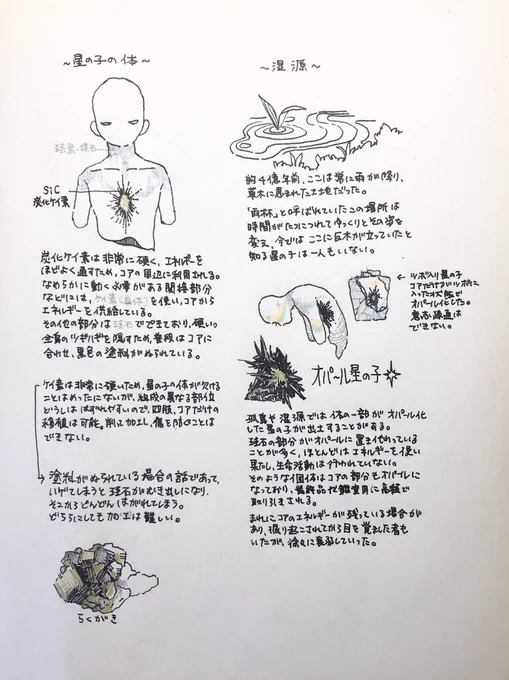 ～星の子の体～
珪素・珪石
SiC
炭化ケイ素
炭化ケイ素は非常に硬く、エネルギーを
ほどよく通すため、コアの周辺に利用される。
なめらかに動く必要がある関節部分
などには、ケイ素(真体)を使い、コアから
エネルギーを供給している。
その他の部分は珪石でできており、硬い。
全身のツギハギを隠すため、普段はコアに
合わせ、黒色の塗料がぬられている。
ケイ素は非常に硬いため、星の子の体が欠ける
ことはめったにないが、組成の異なる部位
どうしははずれやすいので、四肢、コアだけの
移植は可能。削り加工し、傷を防ぐことは
できない。
塗料がぬられている場合の話であって、
いげてしまうと珪石がむき出しになり、
そこからどんどんはがれてしまう。
どちらにしても加工は難しい。
らくがき
～湿源～
約4億年前、ここは常に雨が降り、
草木に恵まれた土地だった。
「雨林」と呼ばれていたこの場所は
時間がたつにつれてゆっくりとその姿を
変え、今ではここに巨木が立っていたと
知る星の子は一人もいない。
← ルボツリ星の子
コアだけがルツボに
入った状態で
オパール化した。
意志疎通は
できない。
オパール星の子
孤島や湿源では体の一部がオパール化
した星の子が出土することがある。
珪石の部分がオパールに置きかわっている
ことが多く、ほとんどはエネルギーを使い
果たし、生命活動は行われていない。
そのような個体はコアの部分もオパールに
なっており、装飾品や鑑賞用に高値で
取り引きされる。
まれにコアのエネルギーが残っている場合が
あり、掘り起こされてから目を覚ました者も
いたが、徐々に衰弱していった。